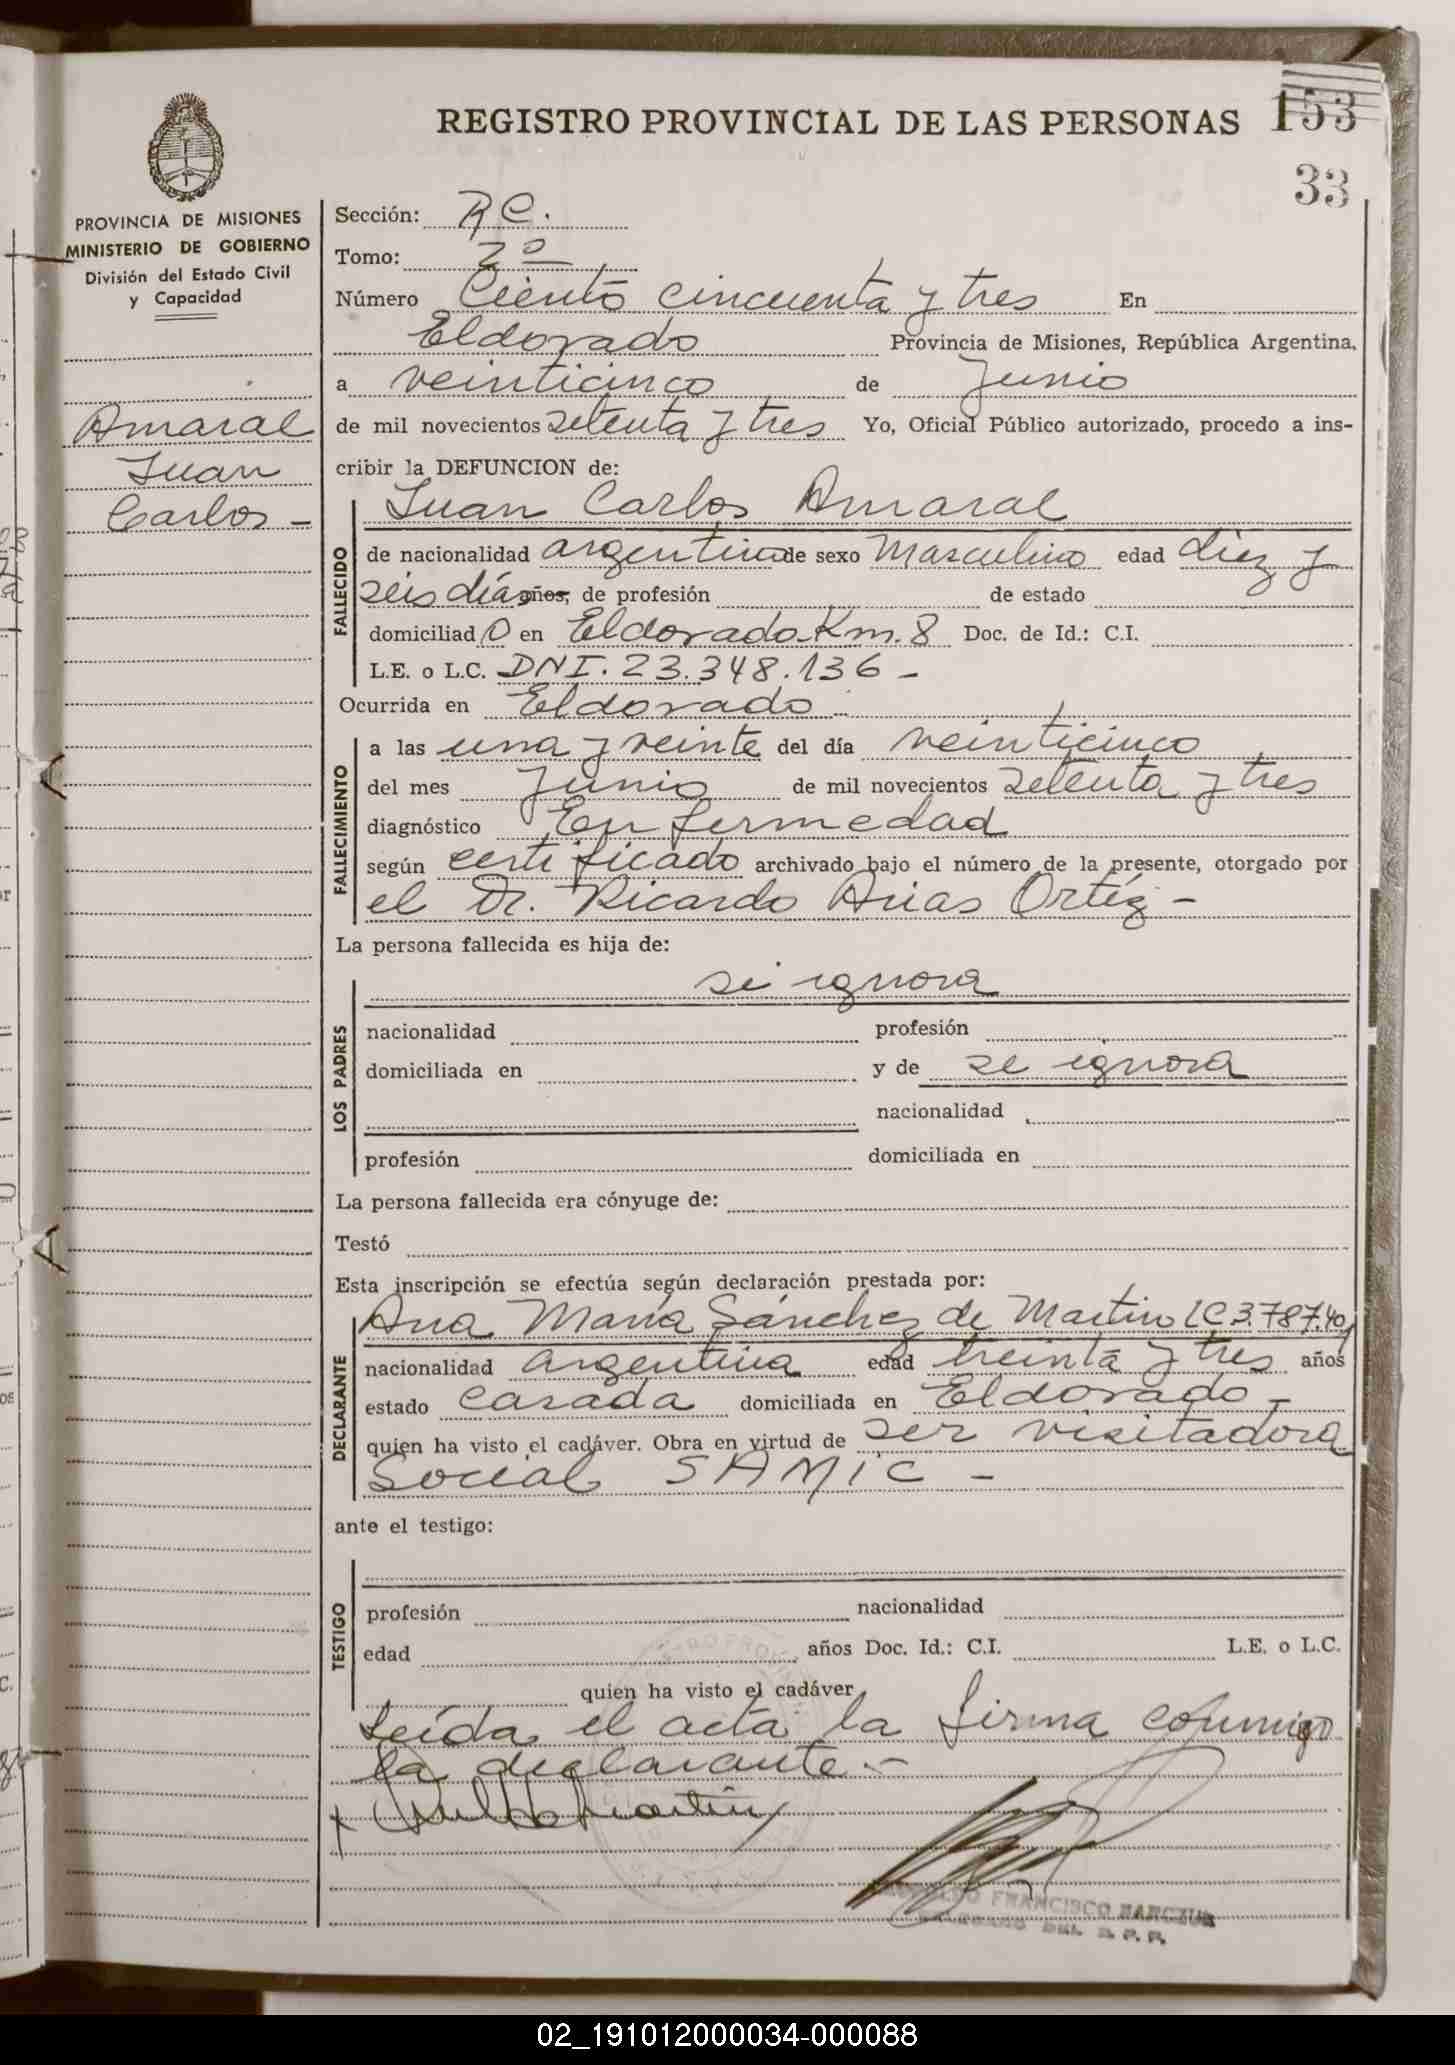 REGISTRO PROVINCIAL DE LAS PERSONAS 153
33
PROVINCIA DE MISIONES
MINISTERIO DE GOBIERNO
División del Estado Civil
y Capacidad
Amaral
Juan
Carlos -
Sección: R C.
Tomo: 2º
Número Ciento cincuenta y tres En
Eldorado Provincia de Misiones, República Argentina,
a veinticinco de Junio
de mil novecientos setenta y tres Yo, Oficial Público autorizado, procedo a ins-
cribir la DEFUNCION de:
Juan Carlos Amaral
FALLECIDO
de nacionalidad argentina de sexo Masculino edad diez y
seis días años, de profesión de estado
domiciliado en Eldorado Km. 8 Doc. de Id.: C.I.
L.E. o L.C. DNI. 23.348.136 -
Ocurrida en Eldorado
FALLECIMIENTO
a las una y veinte del día veinticinco
del mes Junio de mil novecientos setenta y tres
diagnóstico Enfermedad
según certificado archivado bajo el número de la presente, otorgado por
el Dr. Ricardo Arias Ortíz -
La persona fallecida es hija de:
LOS PADRES
se ignora
nacionalidad profesión
domiciliada en y de se ignora
nacionalidad
profesión domiciliada en
La persona fallecida era cónyuge de:
Testó
Esta inscripción se efectúa según declaración prestada por:
DECLARANTE
Ana María Sánchez de Martin LC.3.787.401
nacionalidad argentina edad treinta y tres años
estado casada domiciliada en Eldorado -
quien ha visto el cadáver. Obra en virtud de ser visitadora
Social SAMIC -
ante el testigo:
TESTIGO
profesión nacionalidad
edad años Doc. Id.: C.I. L.E. o L.C.
quien ha visto el cadáver
Leída el acta la firma conmigo
la declarante.-
FRANCISCO
DEL R. P. P.
02_191012000034-000088